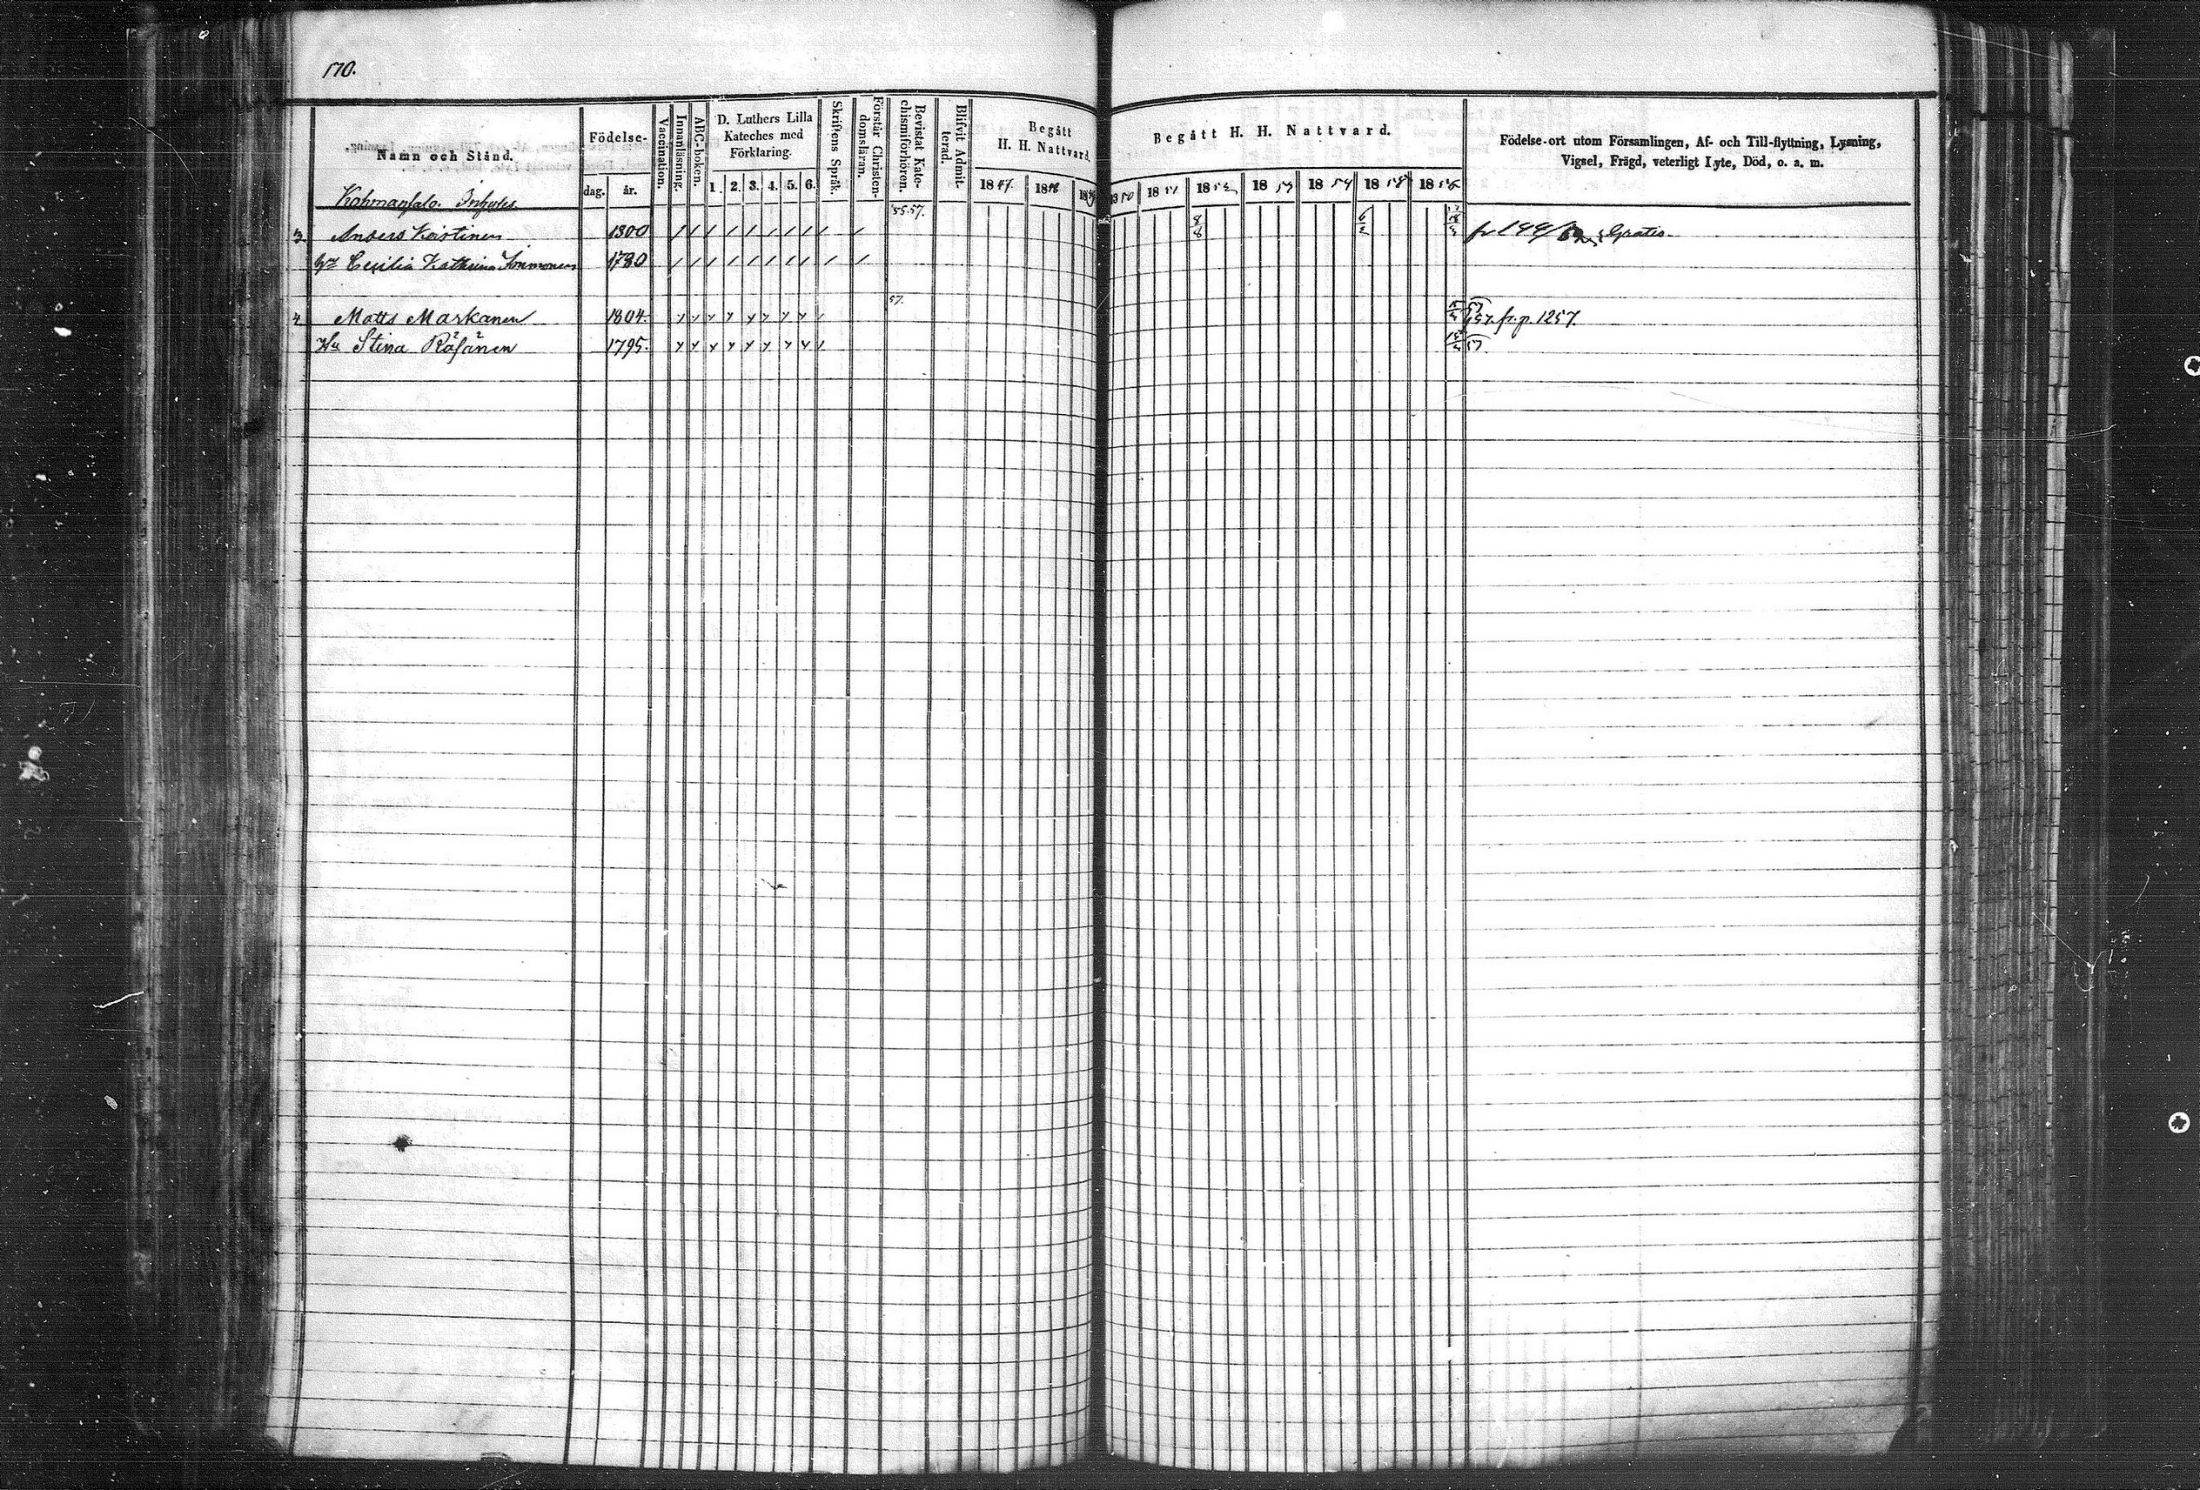 170.
Namn och Stånd.
Födelse-
dag. år.
Vaccination.
Innanläsning.
ABC-boken.
D. Luthers Lilla
Kateches med
Förklaring.
1. 2. 3. 4. 5. 6.
Skriftens Språk.
Förstår Christen-
domsläran.
Bevistat Kate-
chismiförhören.
Blifvit Admit-
terad.
Begått
H. H. Nattvard.
1847. 1848 1849
Begått H. H. Nattvard.
1850 1851 1852 1853 1854 1855 1856
Födelse-ort utom Församlingen, Af- och Till-flyttning, Lysning,
Vigsel, Frägd, veterligt Lyte, Död, o. a. m.
Kohmansalo Inhyses
55.57.
3. Anders Koistinen 1800
Cecilia Kathrina 1780
57.
4. Matts Markanen 1804. 57. fr. p. 1257.
Hu Stina Räsänen 1795. 57.